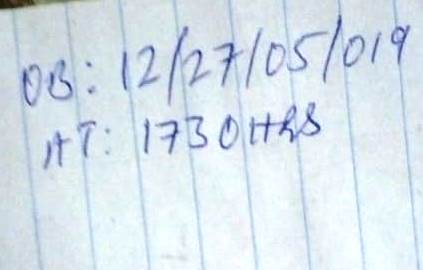 OB: 12/27/05/019
AT: 1730HRS